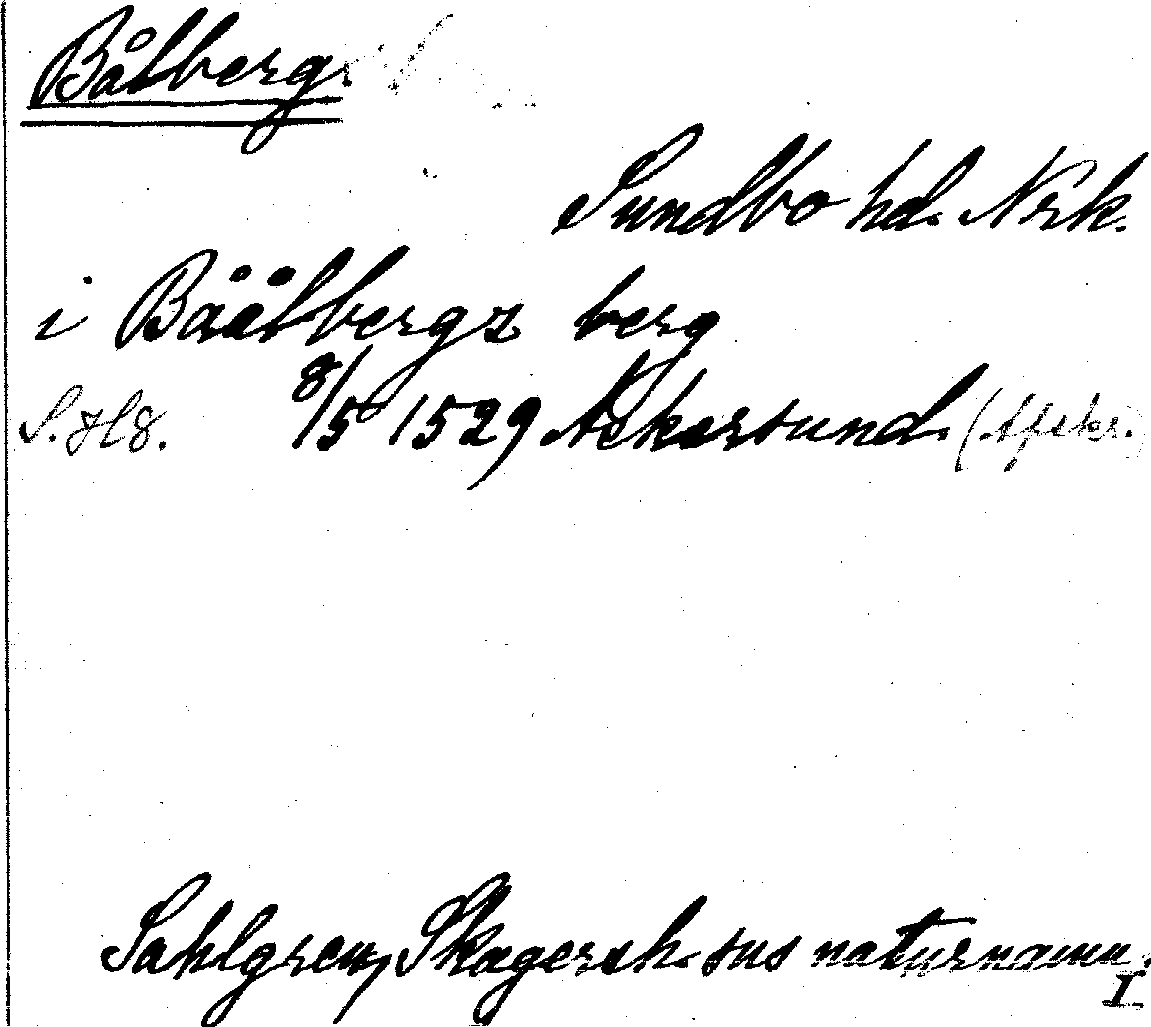 Bålberg
Sundbo hd. Nrk.
i Båålbergz berg
S. H8. 8/5 1529 Askersund (Afskr.)
Sahlgren, Skagersh. sns naturnamn.
I